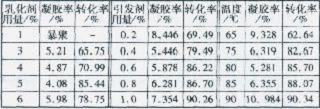 乳化剂用量/% 凝胶率/% 转化率/% 引发剂用量/% 凝胶率/% 转化率/% 温度/℃ 凝胶率/% 转化率/%
1 暴聚 - 0.2 8.446 69.49 65 9.328 62.64
3 5.21 65.75 0.4 5.446 79.49 75 6.319 82.67
4 4.87 70.99 0.6 5.878 86.22 80 5.281 85.70
5 4.08 85.44 0.8 6.281 86.70 85 6.355 88.07
6 5.98 78.75 1.0 7.354 90.26 90 10.984 90.34